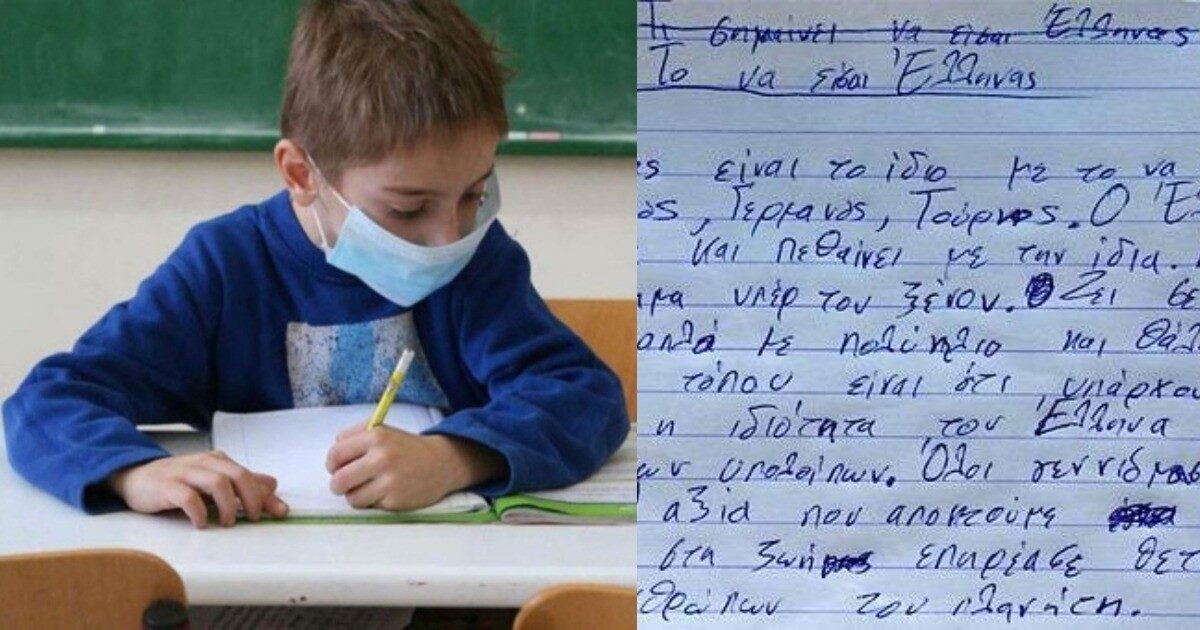 Τι σημαίνει να είσαι Έλληνας
Το να είσαι Έλληνας
ς είναι το ίδιο με το να
ός, Γερμανός, Τούρκος. Ο Έ
και πεθαίνει με την ίδια.
μα υπέρ του ξένου. Ζει σε
απλά με πολύ ήλιο και θάλ
τόπου είναι ότι υπάρχου
η ιδιότητα του Έλληνα
ων υπολοίπων. Όλοι γεννιόμα
αξία που αποκτούμε
στη ζωή επηρέασε θετ
θρώπων του πλανήτη.